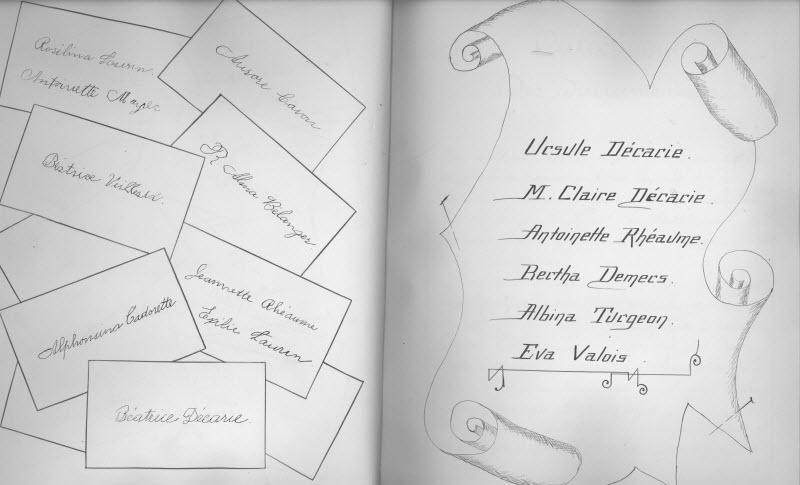 Rosilina Laurin.
Antoinette
Aurore
R. Alma Bélanger
Béatrice
Jeannette Rhéaume
Laurin.
Alphonsina Cadorette
Béatrice Décarie.
Ursule Décarie.
M. Claire Décarie.
Antoinette Rhéaume.
Bertha Demers.
Albina Turgeon.
Eva Valois.